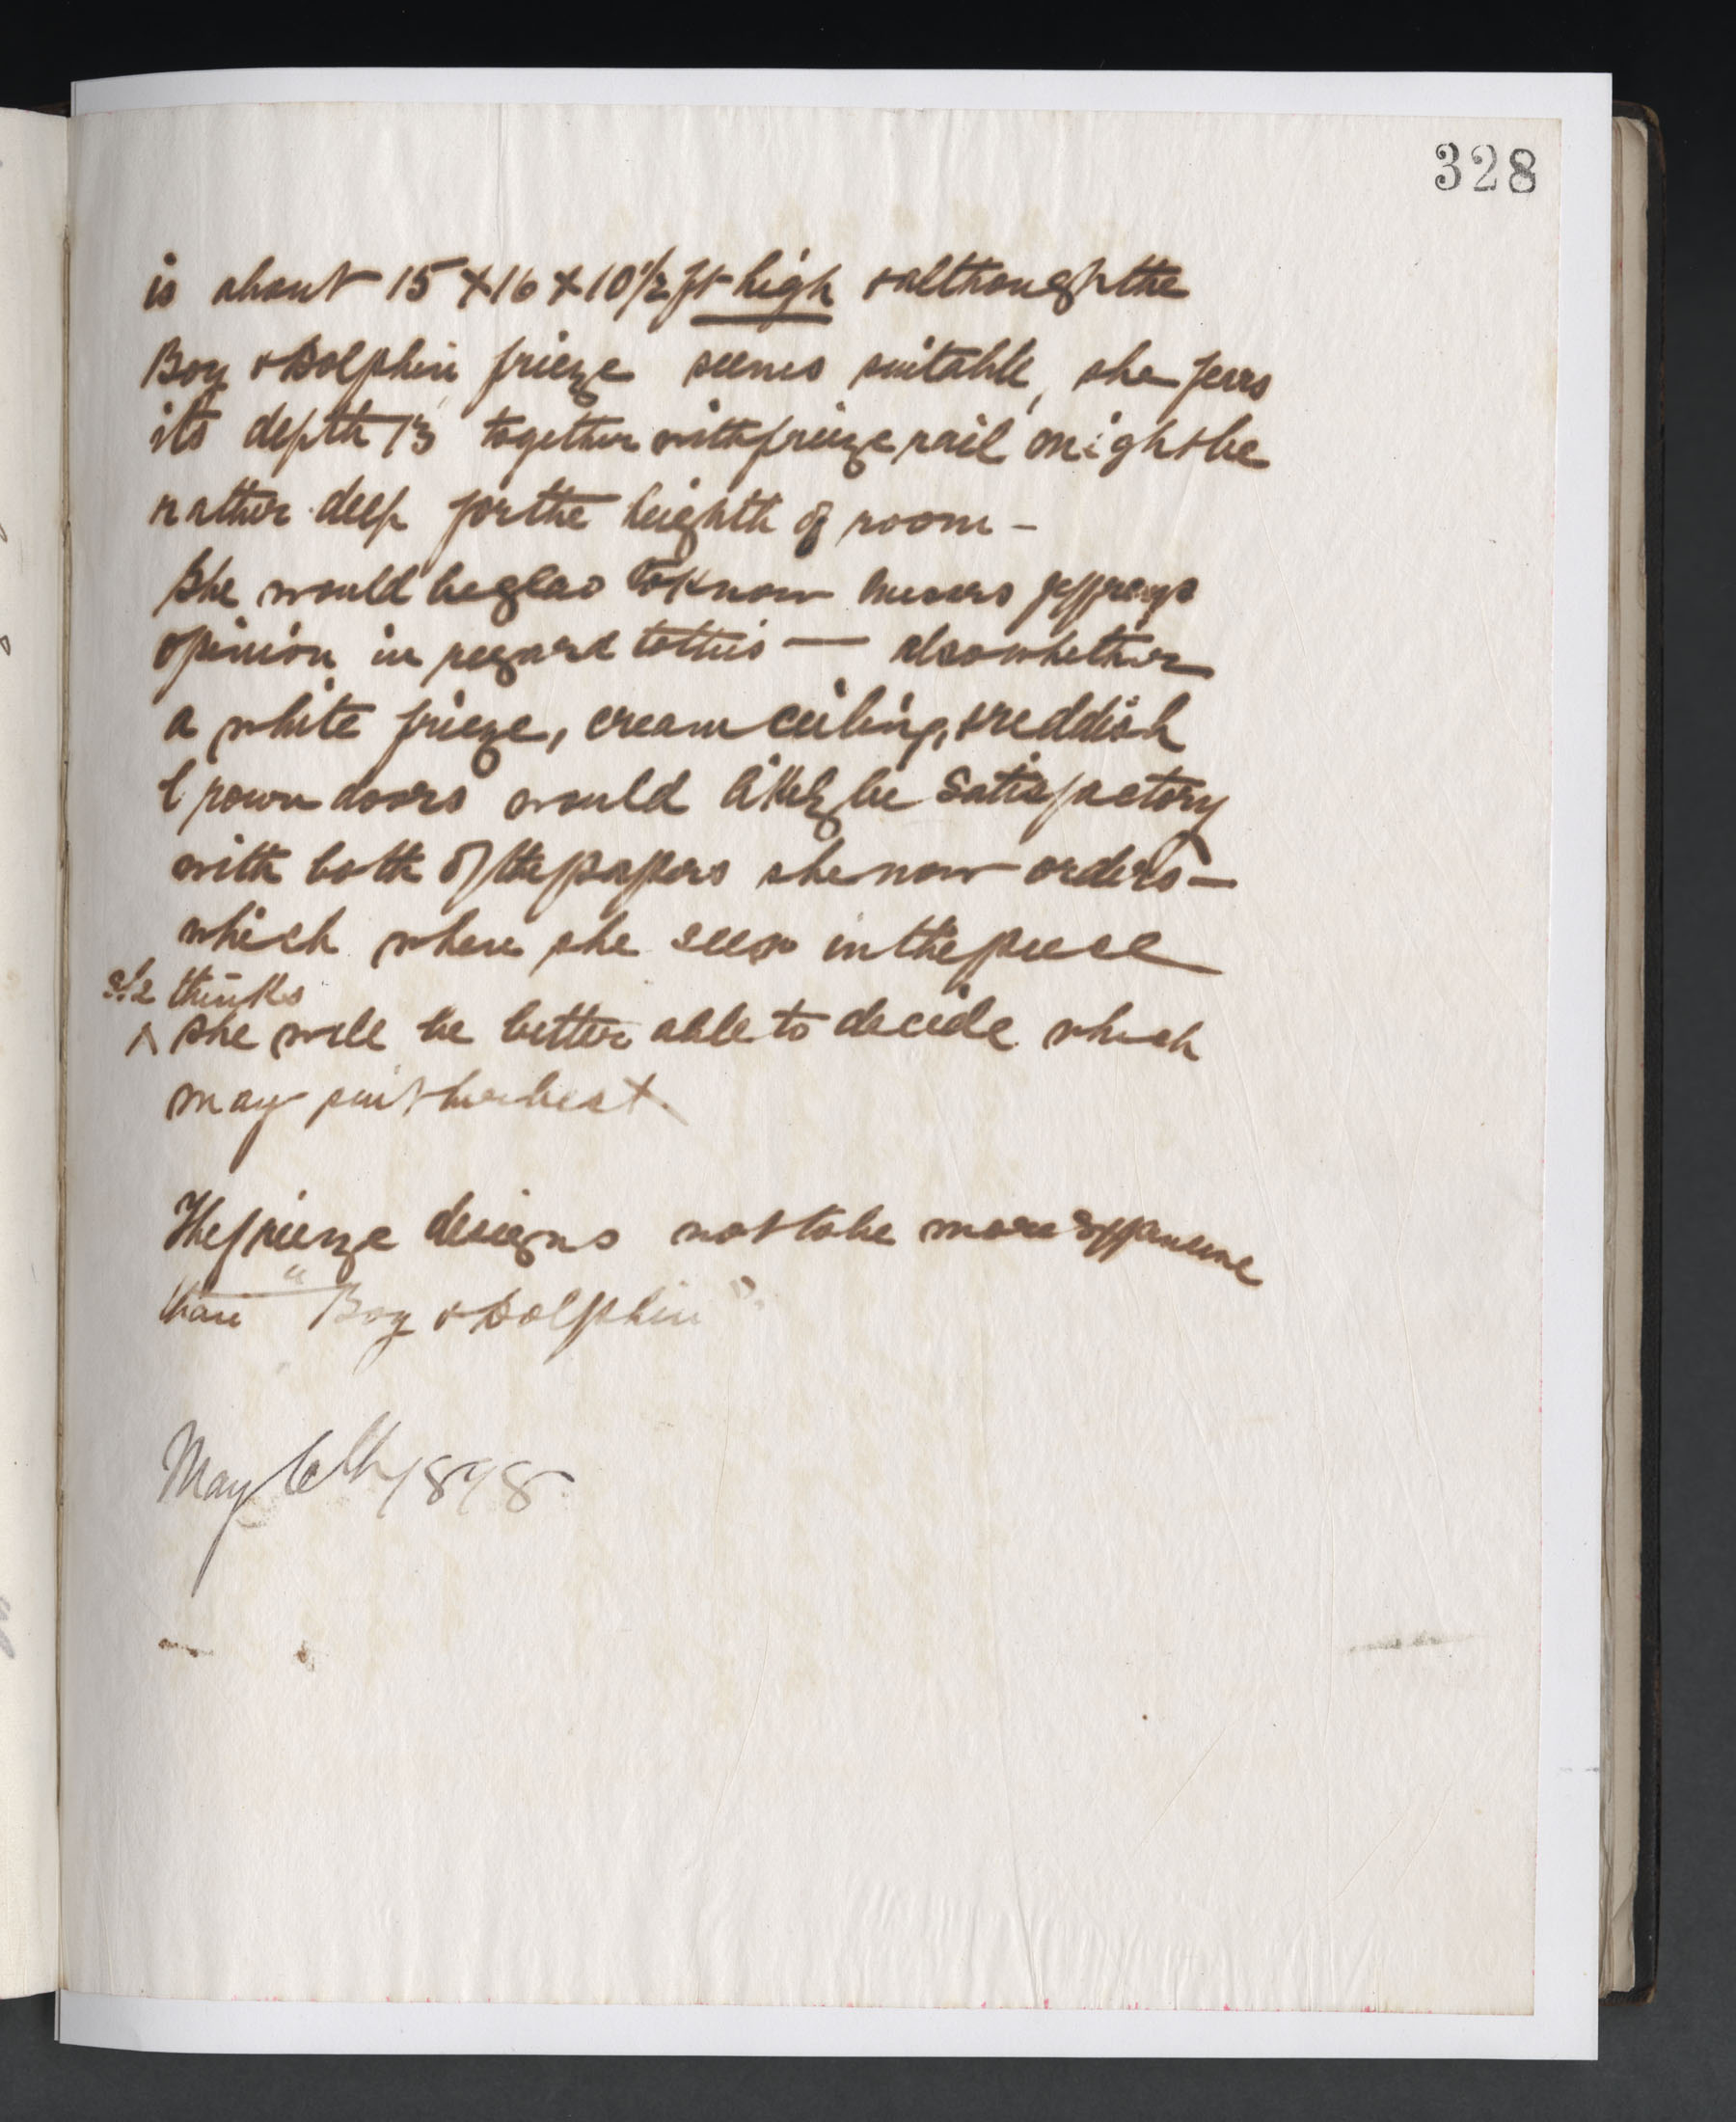 328
is about 15 x 16 x 10 1/2 ft high & although the
Boy & Dolphin frieze seems suitable, she fears
its depth 13 together with frieze rail might be
rather deep for the heighth of room -
She would be glad to know Messrs Jeffreys
opinion in regard to this — also whether
a white frieze, cream ceiling, & reddish
brown doors would likely be satisfactory
with both of the papers she now orders —
which when she sees in the piece
she thinks
^ she will be better able to decide which
may suit her best.
The frieze designs not to be more expensive
than "Boy & Dolphin".
May 6th 1898